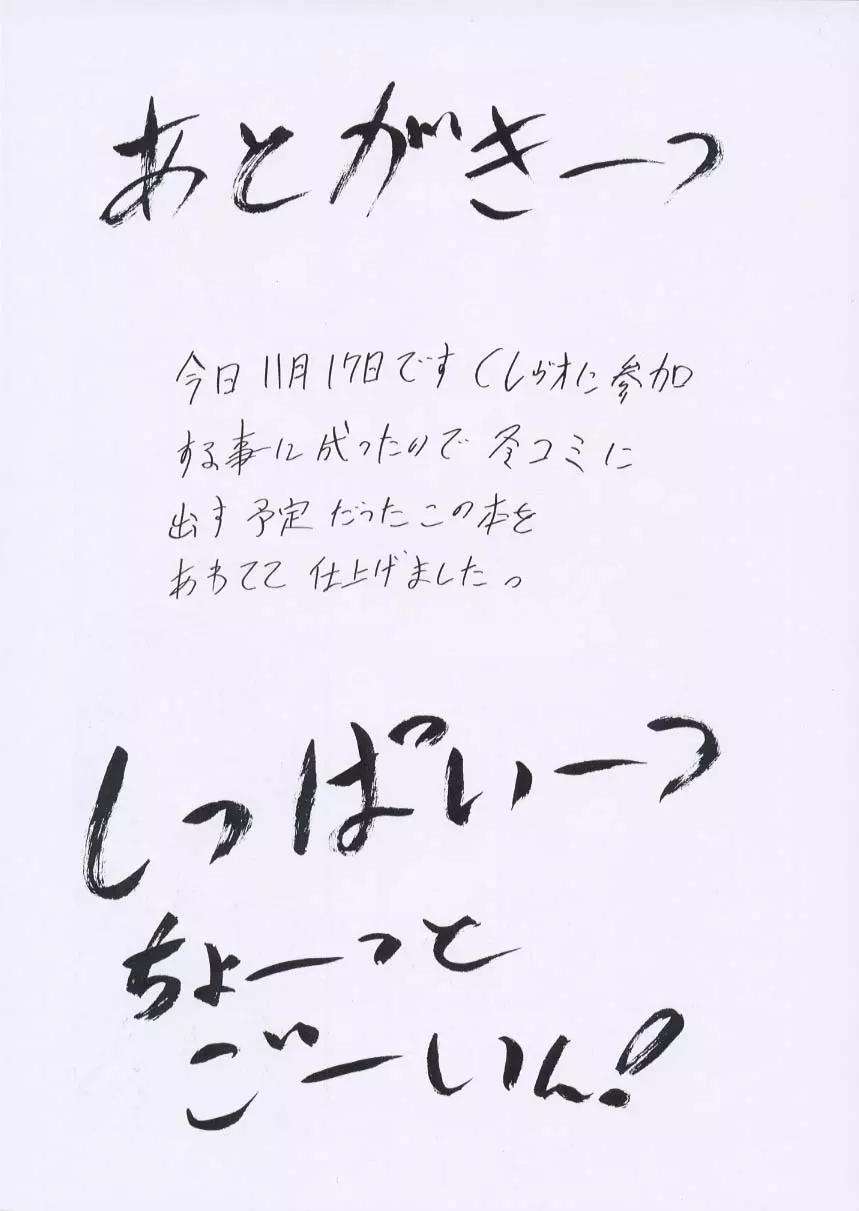 あとがきーっ
今日11月17日です くしケオに参加
する事に成ったので 冬コミに
出す予定だったこの本を
あわてて 仕上げましたっ
しっぱいーっ
ちょーっと
ごーいん!